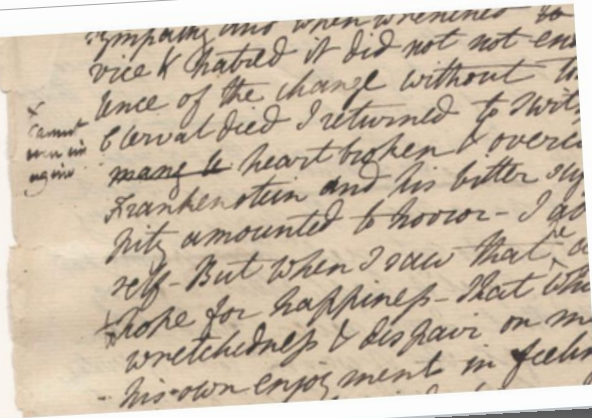 sympathy and when wrenched to
vice & hatred it did not not en
lence of the change without
Clerval died I returned to Swit
heart broken & overco
Frankenstein and his bitter
pity amounted to horror - I
self - But when I saw that he
hope for happiness - That whi
wretchedness & dispair on m
his own enjoyment in feelin